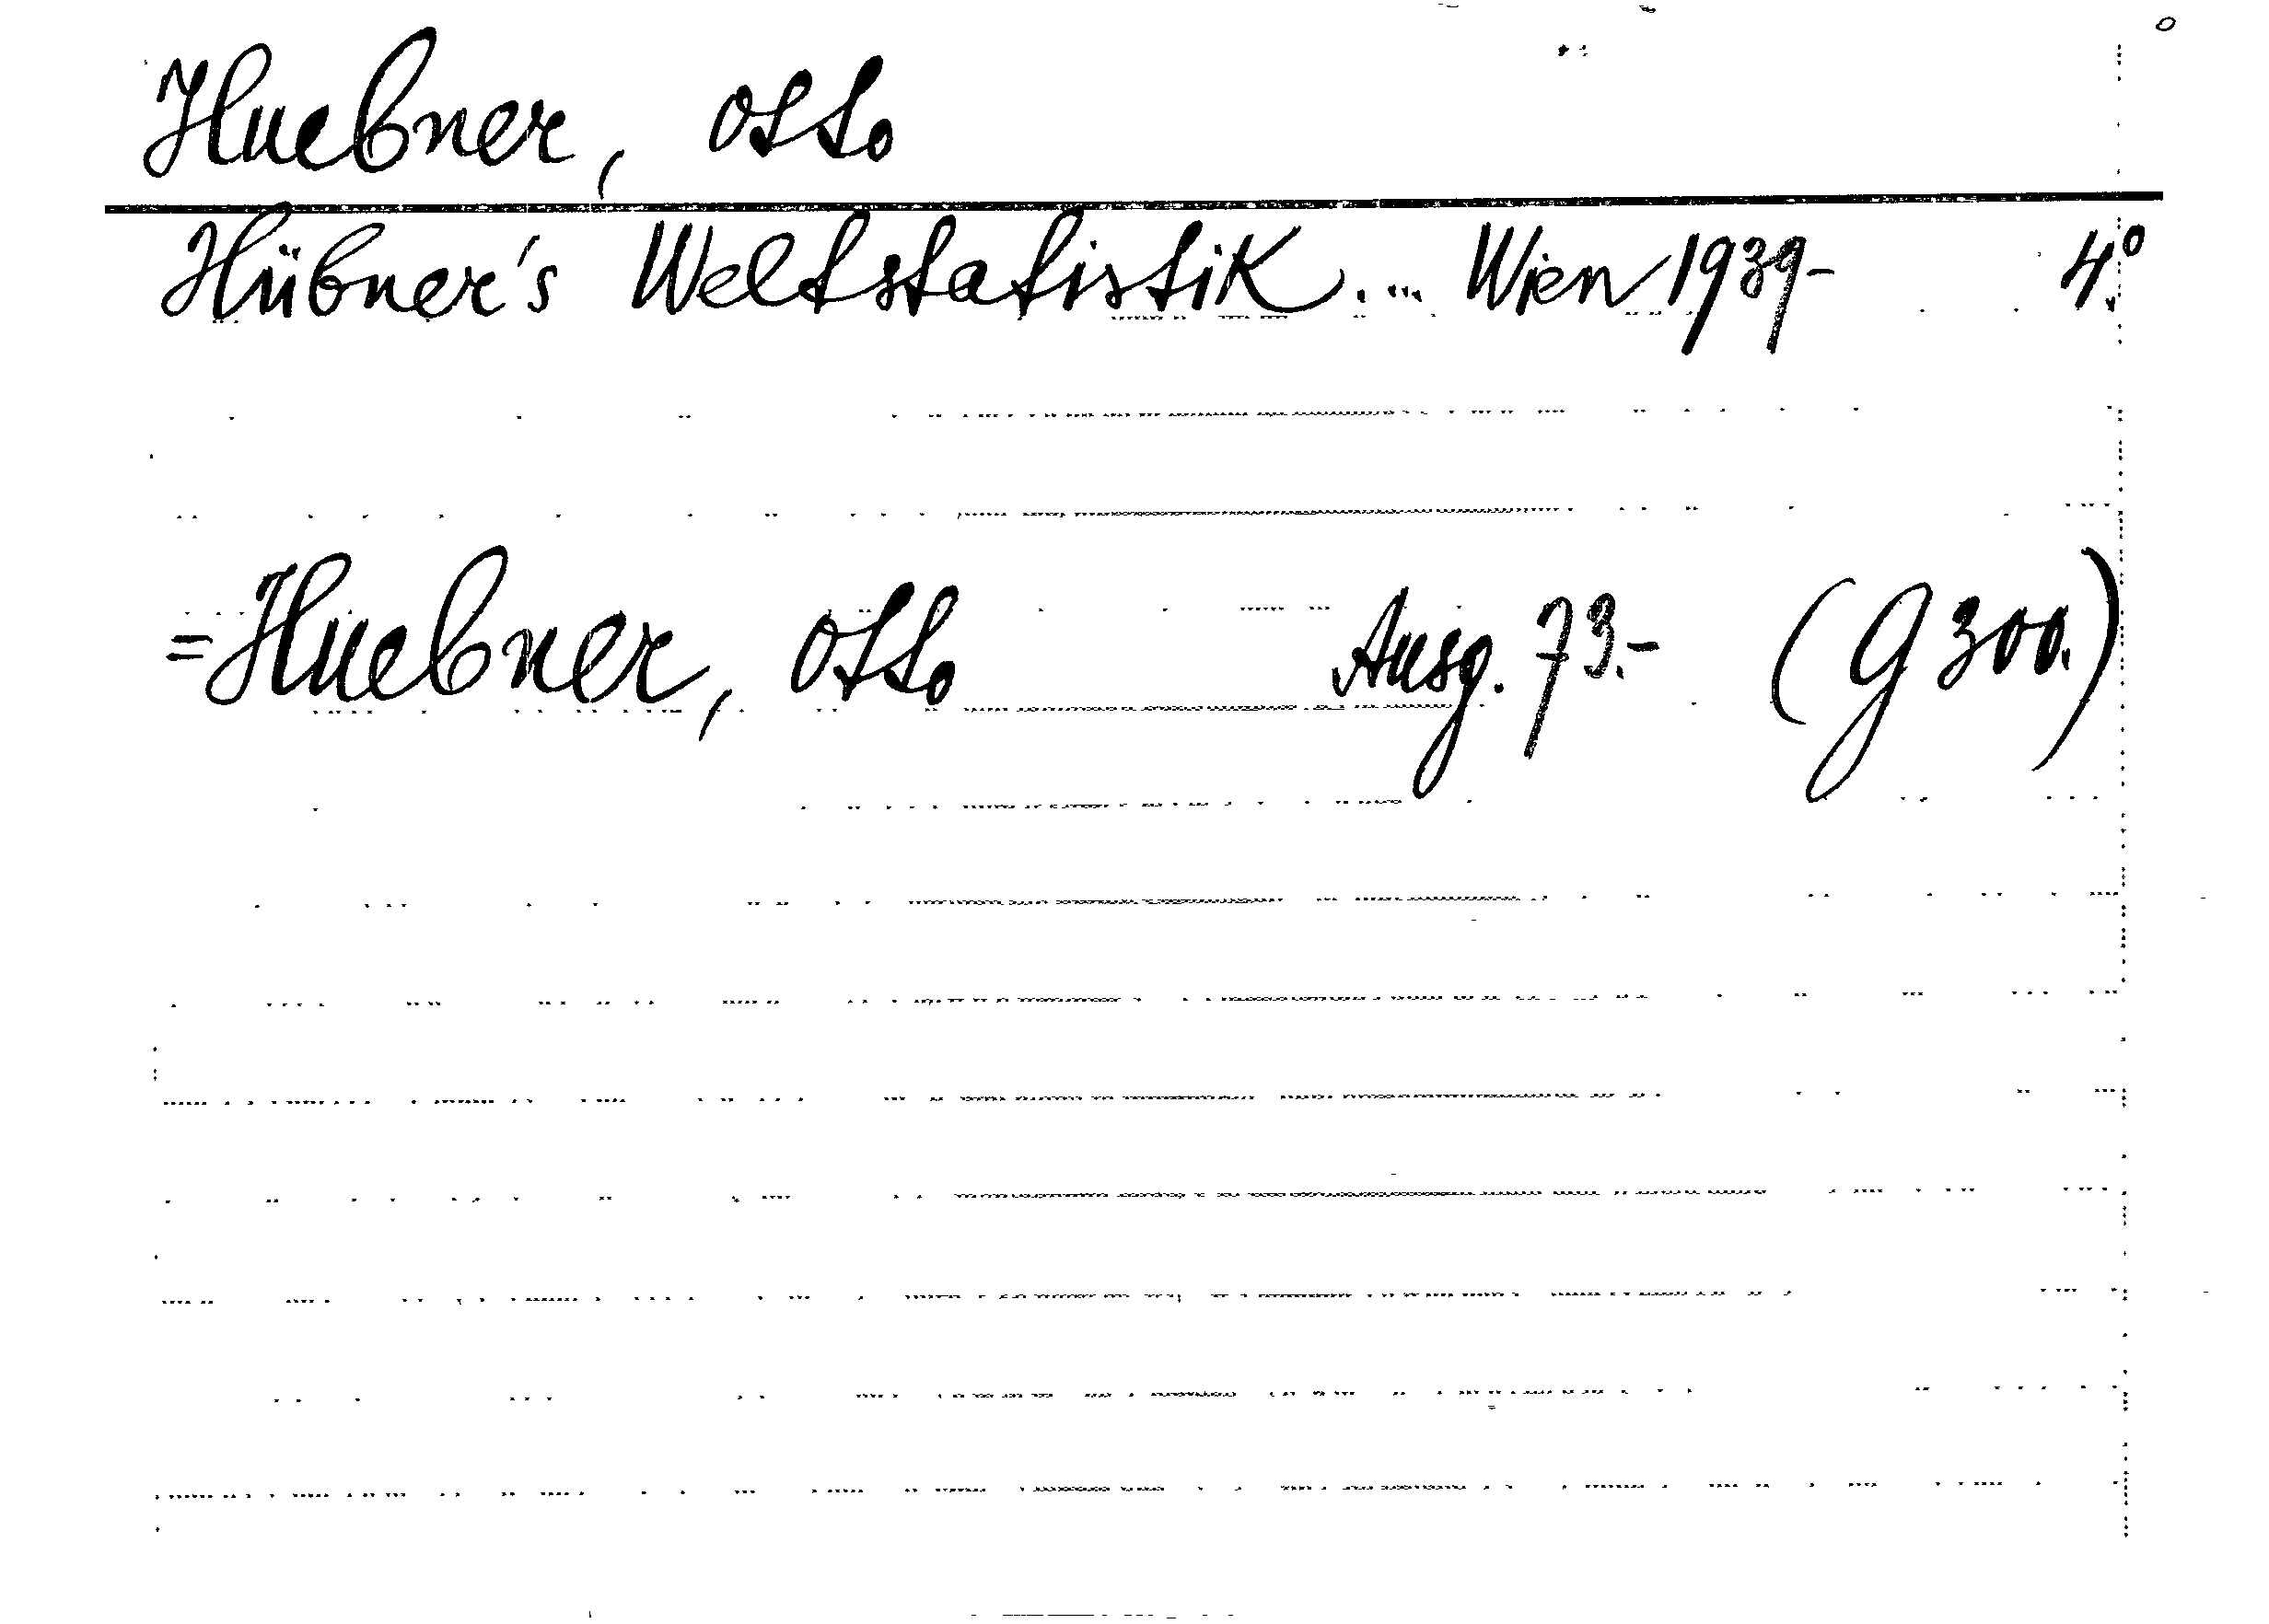 Huebner, Otto
Hübner's Weltstatistik. ... Wien 1939- 4.°
=Huebner, Otto Ausg. 73.- (G 300.)